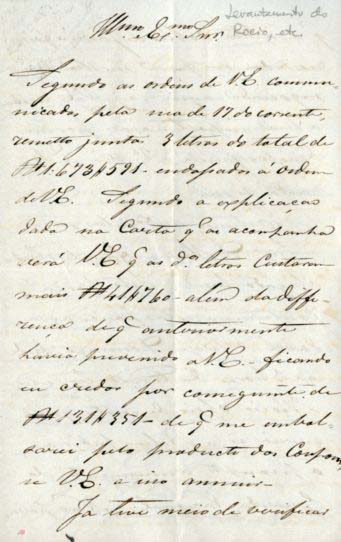 Levantamento do
Rocio, etc.
Illmo Exmo Snr
Segundo as ordens de V.E. commu-
nicadas pela sua de 17 do corrente,
remetto junta 3 letras do total de
1.673$591 - endossadas á ordem
de V.E. Segundo a explicação
dada na Carta q as acompanha
verá V.E. q as ds. letras Custaram
mais 41$760 - alem da diffe-
rença de q anteriormente
havia prevenido a V.E. - ficando
eu credor por conseguinte de
131$351 - de q me embol-
sarei pelo producto dos Coupons
se V.E. a isso annuir -
Ja tive meio de verificar